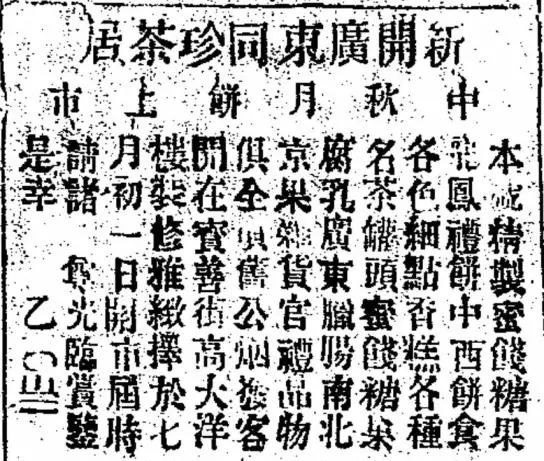 新開廣東同珍茶居
中秋月餅上市
本號精製蜜餞糖果
龍鳳禮餅中西餅食
各色細點香糕各種
名茶罐頭蜜餞糖菓
腐乳廣東臘腸南北
京果雜貨官禮品物
俱全煙舊公烟
客
開在寶善街高大洋
樓裝修雅緻擇於七
月初一日開市屆時
請諸 尊光臨賞鑒
是幸 乙